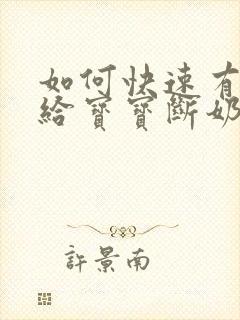 如何快速有
給寶寶斷奶
許景南